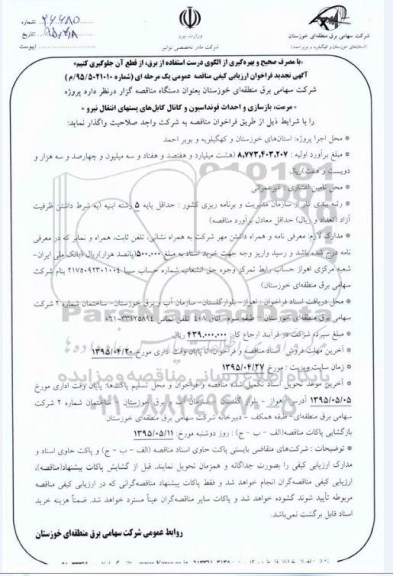 شرکت سهامی برق منطقه‌ای خوزستان
(استانهای خوزستان و کهگیلویه و بویراحمد)
وزارت نیرو
شرکت مادر تخصصی توانیر
شماره
تاریخ
پیوست
«با مصرف صحیح و بهره‌گیری از الگوی درست استفاده از برق، از قطع آن جلوگیری کنیم»
آگهی تجدید فراخوان ارزیابی کیفی مناقصه عمومی یک مرحله ای (شماره ۹۵/۵۰۲۱۰۱۰/م)
شرکت سهامی برق منطقه‌ای خوزستان بعنوان دستگاه مناقصه گزار درنظر دارد پروژه
« مرمت، بازسازی و احداث فونداسیون و کانال کابل‌های پستهای انتقال نیرو »
را با شرایط ذیل از طریق فراخوان مناقصه به شرکت واجد صلاحیت واگذار نماید:
محل اجرا پروژه: استان‌های خوزستان و کهگیلویه و بویر احمد
مبلغ برآورد اولیه : ۸,۷۷۳,۴۰۳,۲۰۷ (هشت میلیارد و هفتصد و هفتاد و سه میلیون و چهارصد و سه هزار و
دویست و هفت) ریال
محل تامین اعتباری: غیرعمرانی
رتبه بندی نیاز از سازمان مدیریت و برنامه ریزی کشور : حداقل پایه ۵ رشته ابنیه (به شرط داشتن ظرفیت
آزاد (تعداد و ریال) حداقل معادل برآورد مناقصه)
مدارک لازم: معرفی نامه و همراه داشتن مهر شرکت به همراه نشانی، تلفن ثابت، همراه و نمابر که در معرفی
نامه درج شده باشد و رسید واریز وجه جهت خرید اسناد به مبلغ ۵۰۰,۰۰۰ (پانصد هزار) ریال (بانک ملی ایران-
شعبه مرکزی اهواز حساب رابط تمرکز وجوه حق انشعاب شماره حساب سیبا ۲۱۷۵۰۹۲۳۰۱۰۰۴ بنام شرکت
سهامی برق منطقه‌ای خوزستان)
محل دریافت اسناد فراخوان: اهواز- بلوار گلستان- سازمان آب و برق خوزستان- ساختمان شماره ۲ شرکت
سهامی برق منطقه‌ای خوزستان- طبقه سوم- اتاق ۴۰۸ تلفن تماس
مبلغ سپرده شرکت در فرآیند ارجاع کار: ۴۳۹,۰۰۰,۰۰۰ ریال
آخرین مهلت فروش اسناد مناقصه و فراخوان: تا پایان وقت اداری مورخ ۱۳۹۵/۰۴/۲۰
زمان سایت ویزیت : مورخ ۱۳۹۵/۰۴/۲۷
آخرین موعد تحویل اسناد تکمیل شده مناقصه و فراخوان و محل تسلیم پاکت‌ها: پایان وقت اداری مورخ
۱۳۹۵/۰۵/۰۵ دبیرخانه - اهواز - بلوار گلستان - سازمان آب و برق خوزستان - ساختمان شماره ۲ شرکت
سهامی برق منطقه‌ای - طبقه همکف - دبیرخانه شرکت سهامی برق منطقه‌ای خوزستان
بازگشایی پاکات مناقصه (الف - ب - ج) : روز دوشنبه مورخ: ۱۳۹۵/۰۵/۱۱
توضیحات : شرکت‌های متقاضی بایستی پاکت حاوی اسناد مناقصه (الف - ب - ج) و پاکت حاوی اسناد و
مدارک ارزیابی کیفی را بصورت جداگانه و همزمان تحویل نمایند. قبل از گشایش پاکات پیشنهاد (مناقصه)،
ارزیابی کیفی مناقصه‌گران انجام خواهد شد و فقط پاکات پیشنهاد مناقصه‌گرانی که در ارزیابی کیفی مناقصه
مربوطه تأیید شوند گشوده خواهد شد و پاکات سایر مناقصه‌گران عیناً مسترد خواهد شد. ضمناً هزینه خرید
اسناد قابل برگشت نمی‌باشد.
روابط عمومی شرکت سهامی برق منطقه‌ای خوزستان
پایگاه اطلاع رسانی مناقصه و مزایده
۰۲۱-۸۸۳۴۹۶۷۰-۵